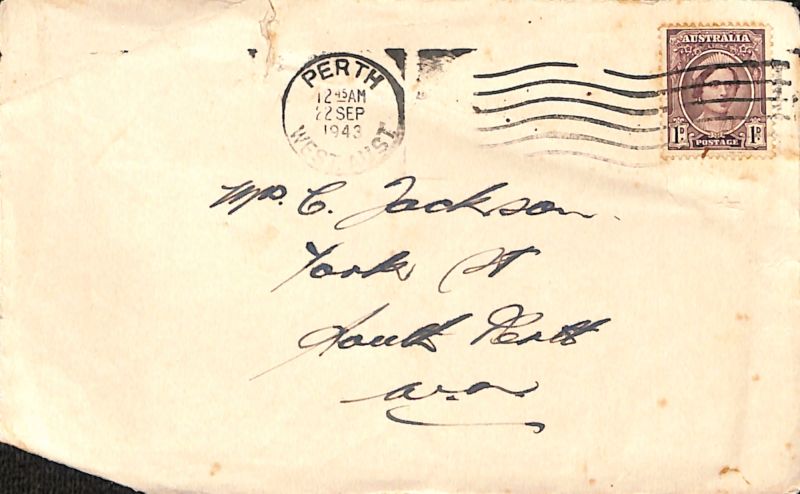 PERTH
12 45 AM
22 SEP
1943
WEST. AUST.
AUSTRALIA
1D 1D
POSTAGE
Mrs. C. Jackson.
York St
South Perth
W.A.